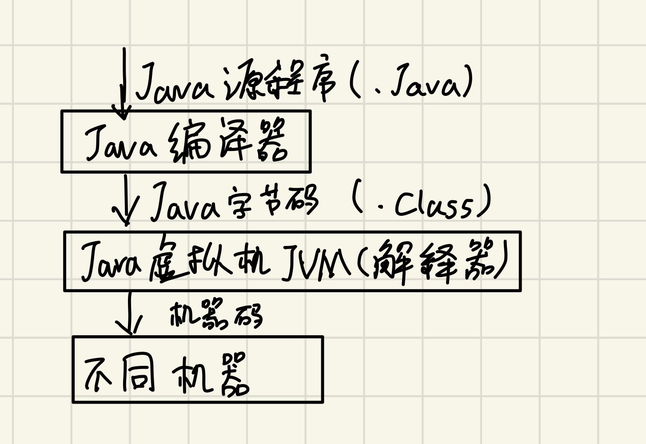 Java 源程序(.Java)
Java 编译器
Java字节码 (.Class)
Java虚拟机 JVM(解释器)
机器码
不同 机器